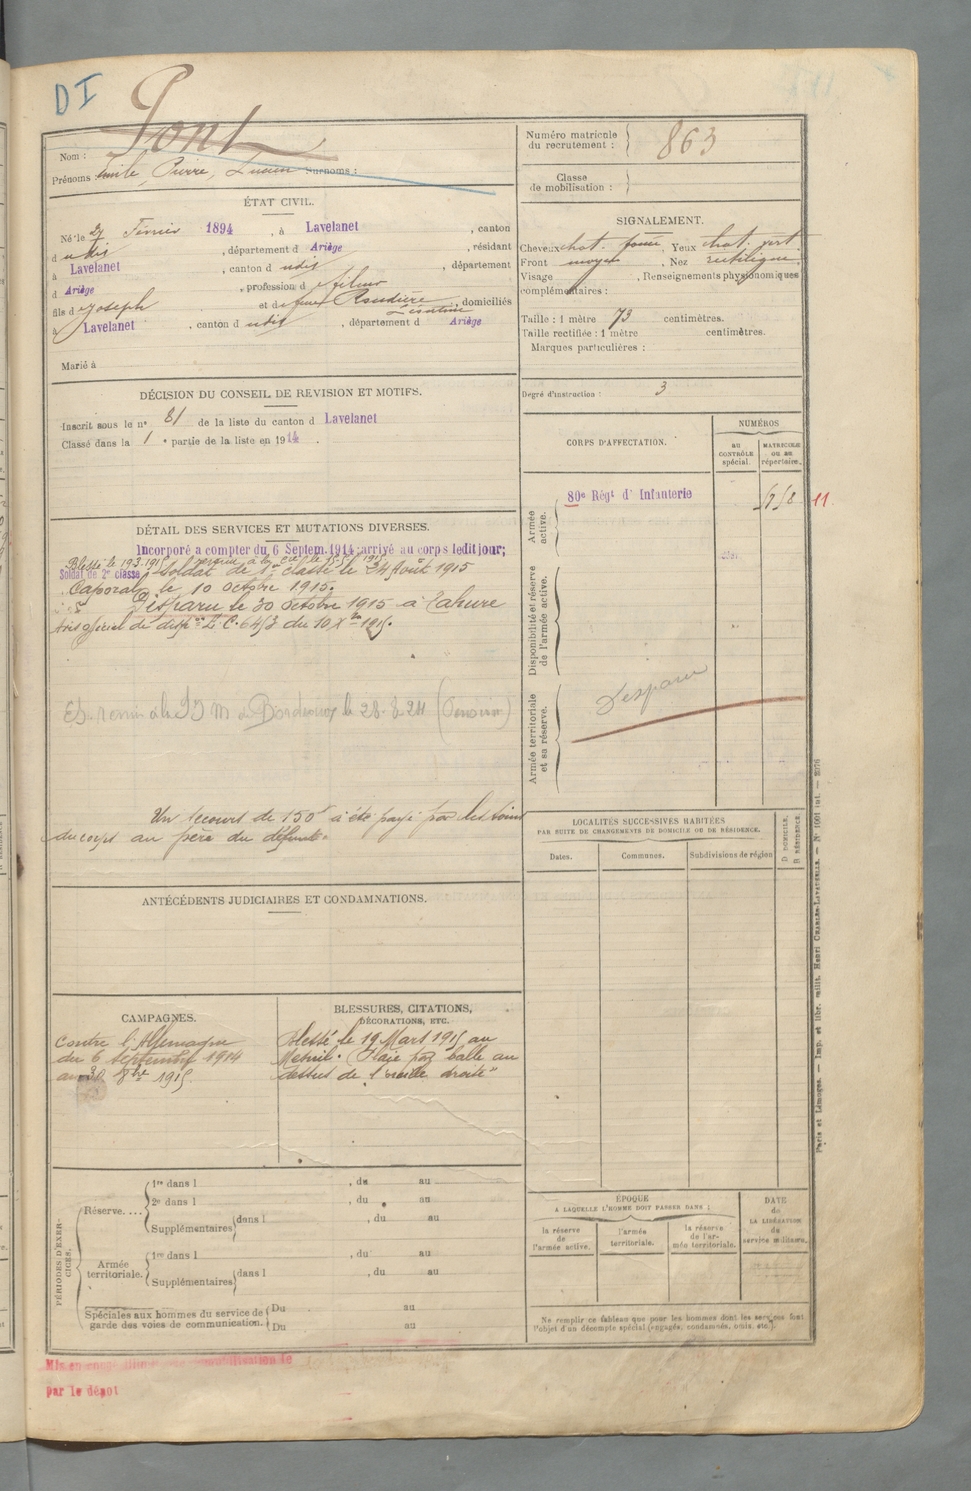 DI
Pont
Nom :
Prénoms : Emile, Pierre, Lucien Surnoms :
Numéro matricule
du recrutement : 863
Classe
de mobilisation :
ÉTAT CIVIL.
Né le 27 Février 1894, à Lavelanet, canton
d udis, département d Ariège, résidant
à Lavelanet, canton d udis, département
d Ariège, profession d fileur
fils d Joseph et de, domiciliés
à Lavelanet, canton d udis, département d Ariège
Marié à
SIGNALEMENT.
Cheveux chat. foncé, Yeux chat.
Front moyen, Nez rectiligne,
Visage, Renseignements physionomiques
complémentaires :
Taille : 1 mètre 73 centimètres.
Taille rectifiée : 1 mètre centimètres.
Marques particulières :
Degré d'instruction : 3
DÉCISION DU CONSEIL DE REVISION ET MOTIFS.
Inscrit sous le nº 81 de la liste du canton d Lavelanet
Classé dans la 1e partie de la liste en 1914.
CORPS D'AFFECTATION.
NUMÉROS
au
CONTRÔLE
spécial.
MATRICULE
ou au
répertoire.
80e Régt d'Infanterie
11
Armée
active.
Disponibilité et réserve
de l'armée active.
Armée territoriale
et sa réserve.
Disparu
DÉTAIL DES SERVICES ET MUTATIONS DIVERSES.
Incorporé à compter du 6 Septem. 1914; arrivé au corps ledit jour;
Blessé le 19.3.1915
Soldat de 2e classe Soldat de 1e classe le 24 Août 1915
Caporal le 10 octobre 1915.
Disparu le 30 octobre 1915 à Tahure
Avis officiel de disp. du 10 Xbre 1915.
Bordeaux le 28.8.24
Un secours de 150f a été payé par les soins
du corps au père du défunt.
LOCALITÉS SUCCESSIVES HABITÉES
PAR SUITE DE CHANGEMENTS DE DOMICILE OU DE RÉSIDENCE.
Dates.
Communes.
Subdivisions de région
D DOMICILE.
R RÉSIDENCE.
ANTÉCÉDENTS JUDICIAIRES ET CONDAMNATIONS.
CAMPAGNES.
Contre l'Allemagne
du 6 septembre 1914
au 30 8bre 1915
BLESSURES, CITATIONS,
DÉCORATIONS, ETC.
Blessé le 19 Mars 1915 au
Mesnil. Plaie par balle au
dessus de l'oreille droite"
PÉRIODES D'EXER-
CICES.
Réserve....
1re dans l, du au
2e dans l, du au
Supplémentaires dans l, du au
Armée
territoriale.
1re dans l, du au
Supplémentaires dans l, du au
Spéciales aux hommes du service de
garde des voies de communication.
Du au
Du au
ÉPOQUE
A LAQUELLE L'HOMME DOIT PASSER DANS :
la réserve
de
l'armée active.
l'armée
territoriale.
la réserve
de l'ar-
mée territoriale.
DATE
de
LA LIBÉRATION
du
service militaire.
Ne remplir ce tableau que pour les hommes dont les services font
l'objet d'un décompte spécial (engagés, condamnés, omis, etc.).
par le dépôt
Paris et Limoges. — Imp. et libr. milit. Henri CHARLES-LAVAUZELLE.